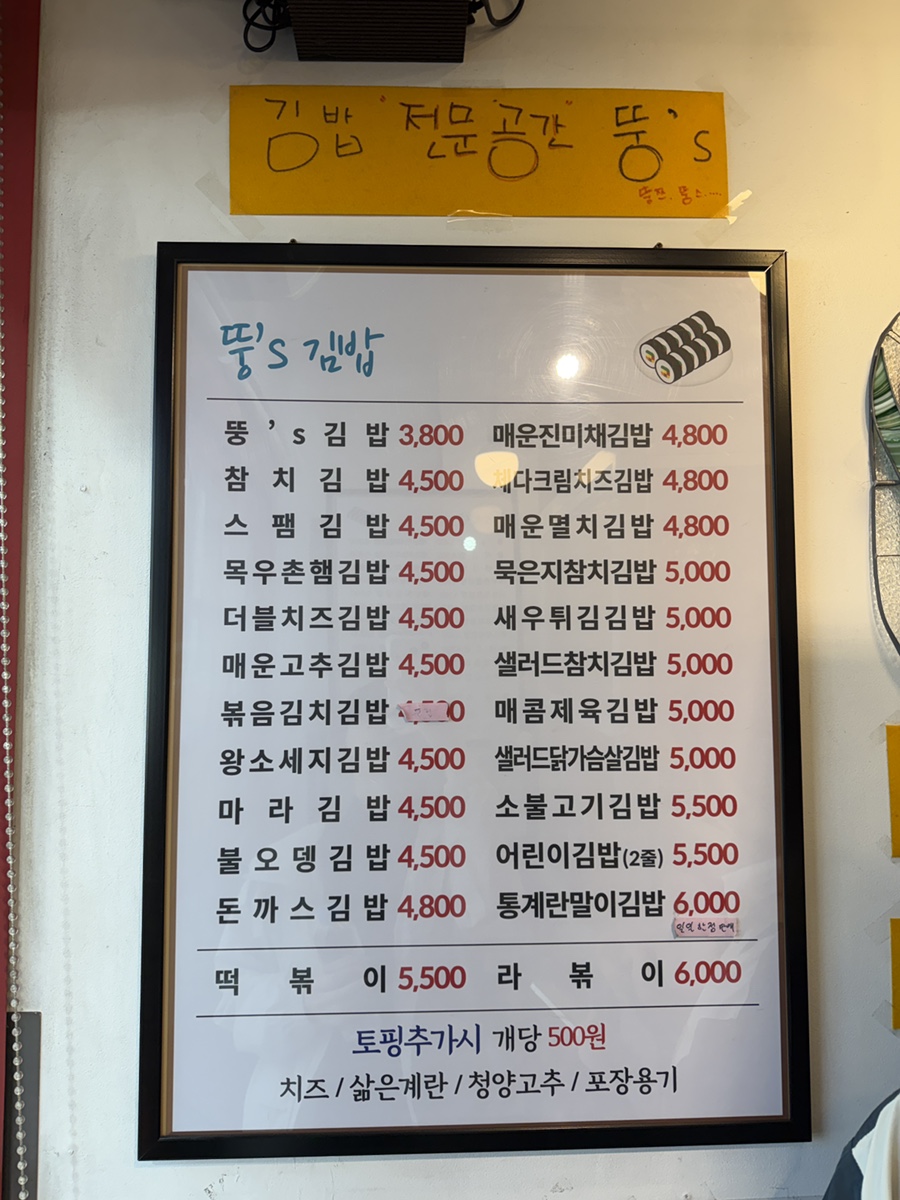 김밥 "전문공간" 뚱's
뚱's 김밥
뚱's김밥 3,800
참치김밥 4,500
스팸김밥 4,500
목우촌햄김밥 4,500
더블치즈김밥 4,500
매운고추김밥 4,500
볶음김치김밥
왕소세지김밥 4,500
마라김밥 4,500
불오뎅김밥 4,500
돈까스김밥 4,800
매운진미채김밥 4,800
체다크림치즈김밥 4,800
매운멸치김밥 4,800
묵은지참치김밥 5,000
새우튀김김밥 5,000
샐러드참치김밥 5,000
매콤제육김밥 5,000
샐러드닭가슴살김밥 5,000
소불고기김밥 5,500
어린이김밥(2줄) 5,500
통계란말이김밥 6,000
떡볶이 5,500
라볶이 6,000
토핑추가시 개당 500원
치즈 / 삶은계란 / 청양고추 / 포장용기